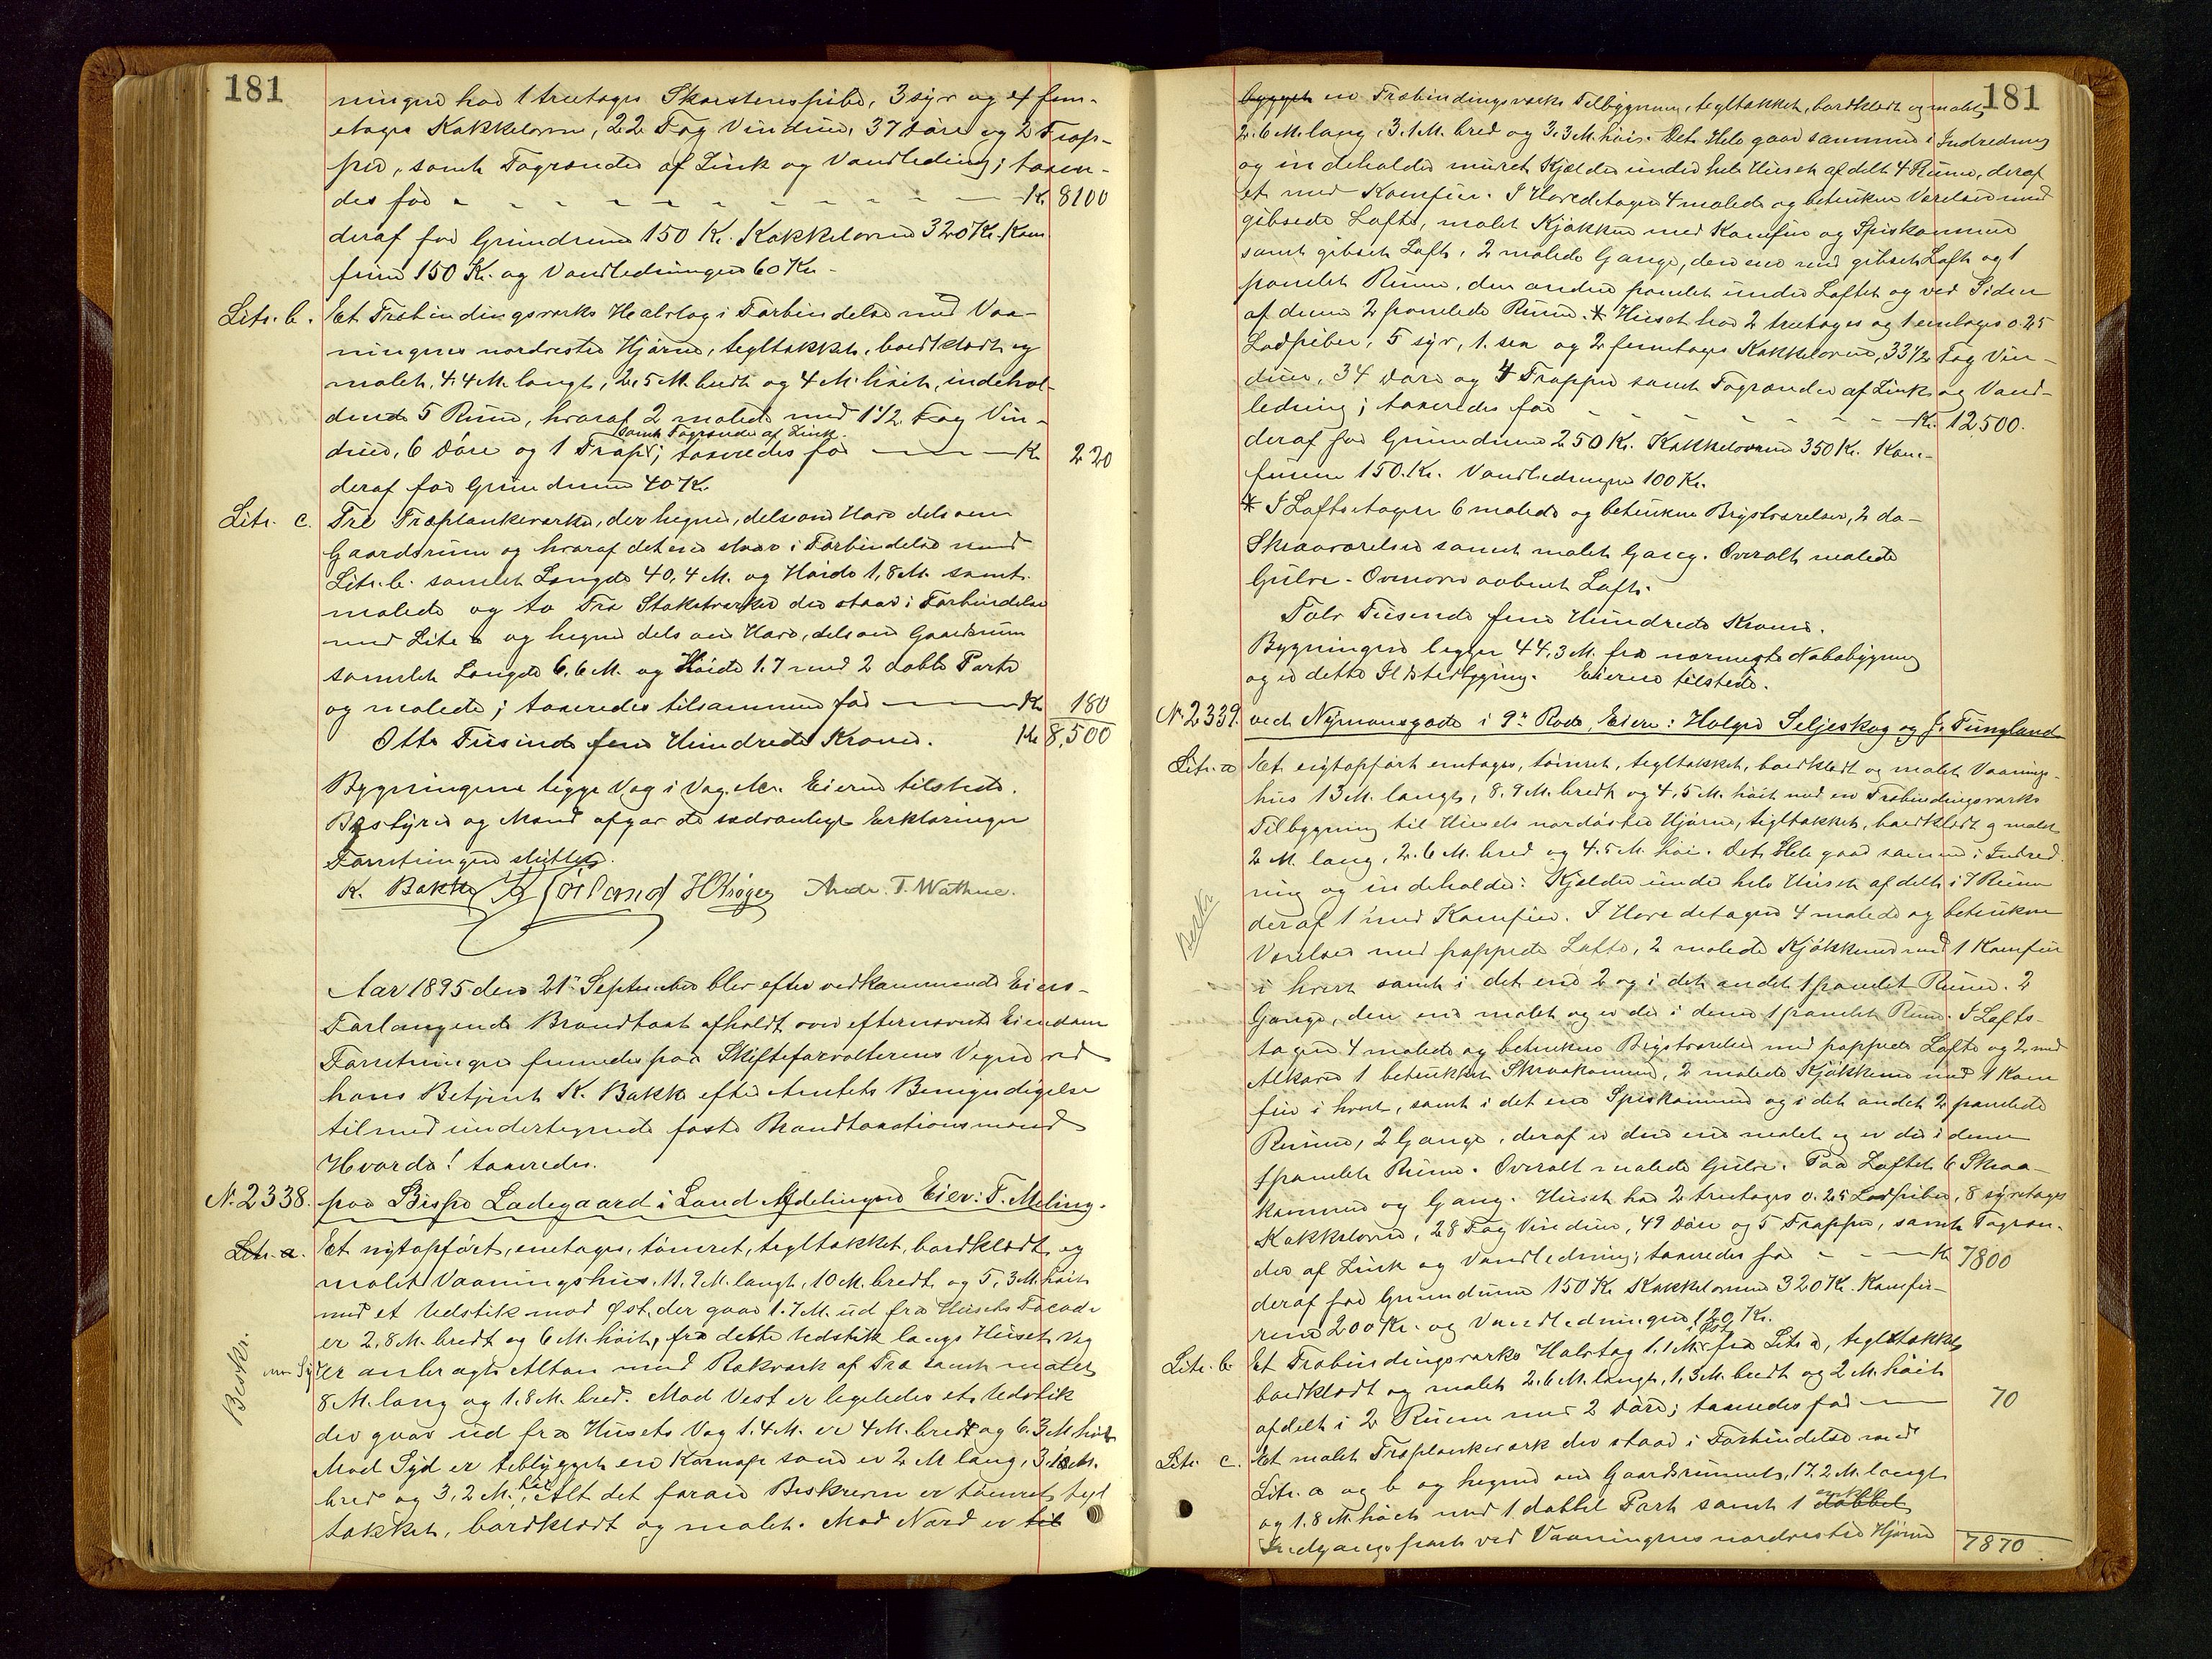 181
ningen har 1 treetages Skorstenspibe, 3 syv og ef fem-
etages Kakkelovne, 22 Fag Vinduer, 37 Døre og 2 Trap-
per, samt Tagrender af Zink og Vandledning; taxer-
des for - - - - - - - - - - Kr. 8100
deraf for Grundmur 150 Kr. Kakkelovne 320 Kr. Kom-
furer 150 Kr. og Vandledningen 60 Kr.
Litr. b. Et Træbindingsverks Halvtag i Forbindelse med Vaa-
ningens nordvestre Hjørne, tegltækket, bordklædt og
malet, 4.4 M. langt, 2.5 M. bredt og 4 M. høit, indehol-
dende 5 Rum, hvoraf 2 malede med 1 1/2 Fag Vin-
samt Tagrende af Zink.
duer, 6 Døre og 1 Trap; taxeredes for — Kr. 220
deraf for Grundmur 40 Kr.
Litr. c. Tre Træplankeverker, der hegne, dels om Have dels om
Gaardsrum og hvoraf det ene staar i Forbindelse med
Litr. b. samlet Længde 40,4 M. og Høide 1,8 M. samt
malede og to Træ Staketverker der staar i Forbindelse
med Litr a og hegne dels om Have, dels om Gaardsrum
samlet Længde 6,6 M. og Høide 1.7 med 2 doble Porte
og malede; taxeredes tilsammen for — Kr. 180
Otte Tusinde fem Hundrede Kroner. Kr. 8,500
Bygningerne ligge Væg i Væg. Eieren tilstede.
Bestyrer og Mænd afgav de sedvanlige Erklæringer
Forretningen sluttet.
K. Bakke Sørland H Krøger Andr. T. Wathne.
Aar 1895 den 21de September blev efter vedkommende Eiers
Forlangende Brandtaxt afholdt over efternævnte Eiendom
Forretningen fremmedes paa Skifteforvalterens Vegne ved
hans Betjent K. Bakke efter Amtets Bemyndigelse
tilmed undertegnede faste Brandtaxationsmænd
Hvorda! taxeredes.
N. 2338. paa Bispe Ladegaard i Land Afdelingen Eier: T. Meling.
Litr. a. Et nyt opført, enetages, tømret, tegltækket, bordklædt og
malet Vaaningshus, 11,9 M. langt, 10 M. bredt og 5,3 M. høit
med et Udstik mod Øst, der gaar 1.7 M. ud fra Husets Facade
er 2,8 M. bredt og 6 M. høit, fra dette Udstik langs Husets Væg
mod Syd er anbragt Altan med Rækværk af Træ samt malet
Beskr.
8 M. lang og 1.8 M. bred. Mod Vest er ligeledes et Udstik
der gaar ud fra Husets Væg 1.4 M. er 4 M. bredt og 6.3 M. høit
Mod Syd er tilbygget en Karnap som er 2 M lang, 3.1 M.
bred og 3,2 M. høi. Alt det foran Beskrevne er tømret, tegl
tækket, bordklædt og malet. Mod Nord er til
181
bygget en Træbindingsverks Tilbygning, tegltækket, bordklædt og malet
2.6 M. lang, 3.1 M. bred og 3,3 M. høi. Det Hele gaar sammen i Indredning
og indeholder muret Kjælder under hele Huset afdelt 4 Rum, deraf
et med Komfur. I Hovedetagen 4 malede og betrukne Værelser med
gibsede Lofte, malet Kjøkken med Komfur og Spiskammer
samt gibset Loft, 2 malede Gange, den ene med gibset Loft og 1
panelet Rum, den anden panelet under Loftet og ved Siden
af denne 2 panelede Rum. * Huset har 2 treetages og 1 enetages 0.25
Lodpiber, 5 syv, 1. sex og 2 femetages Kakkelovne, 33 1/2 Fag Vin-
duer, 34 Døre og 4 Trapper samt Tagrender af Zink og Vand-
ledning; taxeredes for - - - - - - Kr. 12,500.
deraf for Grundmur 250 Kr. Kakkelovne 350 Kr. Kom-
furer 150. Kr. Vandledningen 100 Kr.
* I Loftsetagen 6 malede og betrukne Brystværelser, 2 do-
Skraaværelser samt malet Gang. Overalt malede
Gulve. Ovenover aabent Loft.
Tolv Tusinde fem Hundrede Kroner.
Bygningen ligger 44,3 M. fra nærmeste Nabobygning
og er dette Ildstedbygning. Eieren tilstede.
N. 2339. ved Nymansgade i 9de Rode, Eiere: Holger Seljeskog og J. Tungland
Litr. a Et nyt opført enetages, tømret, tegltækket, bordklædt og malet Vaanings-
hus 13 M. langt, 8.9 M. bredt og 4,5 M. høit med en Træbindingsverks
Tilbygning til Husets nordøstre Hjørne, tegltækket, bordklædt og malet
2 M. lang, 2.6 M. bred og 4.5 M. høi. Det Hele gaar sammen i Indred-
ning og indeholder: Kjælder under hele Huset afdelt i 7 Rum
Beskr
deraf 1 med Komfur. I Hovedetagen 4 malede og betrukne
Værelser med pappede Lofte, 2 malede Kjøkkener med 1 Komfur
i hvert samt i det ene 2 og i det andet 1 panelet Rum. 2
Gange, den ene malet og er der i denne 1 panelet Rum. I Lofts-
etagen 4 malede og betrukne Brystværelser med pappede Lofte og 2 med
Alkover 1 betrukket Skraakammer, 2 malede Kjøkkener med 1 Kom
fur i hvert, samt i det ene Spiskammer og i det andet 2 panelede
Rum, 2 Gange, deraf er den ene malet og er der i denne
1 panelet Rum. Overalt malede Gulve. Paa Loftet 6 Skraa-
kammere og Gang. Huset har 2 treetages 0.25 Lodpiber, 8 syvetages
Kakkelovne, 28 Fag Vinduer, 49 Døre og 5 Trapper, samt Tagren-
der af Zink og Vandledning; taxeredes for - - - Kr. 7800
deraf for Grundmur 150 Kr. Kakkelovne 320 Kr. Komfu-
rene 200 Kr. og Vandledningen 120 Kr.
i Øst
Litr. b Et Træbindingsverks Halvtag 1.1 M. fra Litr a, tegltækket
bordklædt og malet 2.6 M. langt, 1,3 M. bredt og 2 M. høit
afdelt i 2 Rum med 2 Døre; taxeredes for — 70
Litr. c. Et malet Træplankeverk der staar i Forbindelse med
Litr. a og b og hegner om Gaardsrummet, 17.2 M. langt
og 1.8 M. høit med 1 dobbel Port samt 1 dobbel
Indgangsport ved Vaaningens nordvestre Hjørne
7870